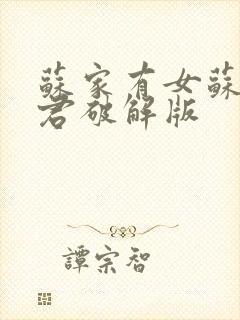 蘇家有女蘇
君破解版
譚宗智